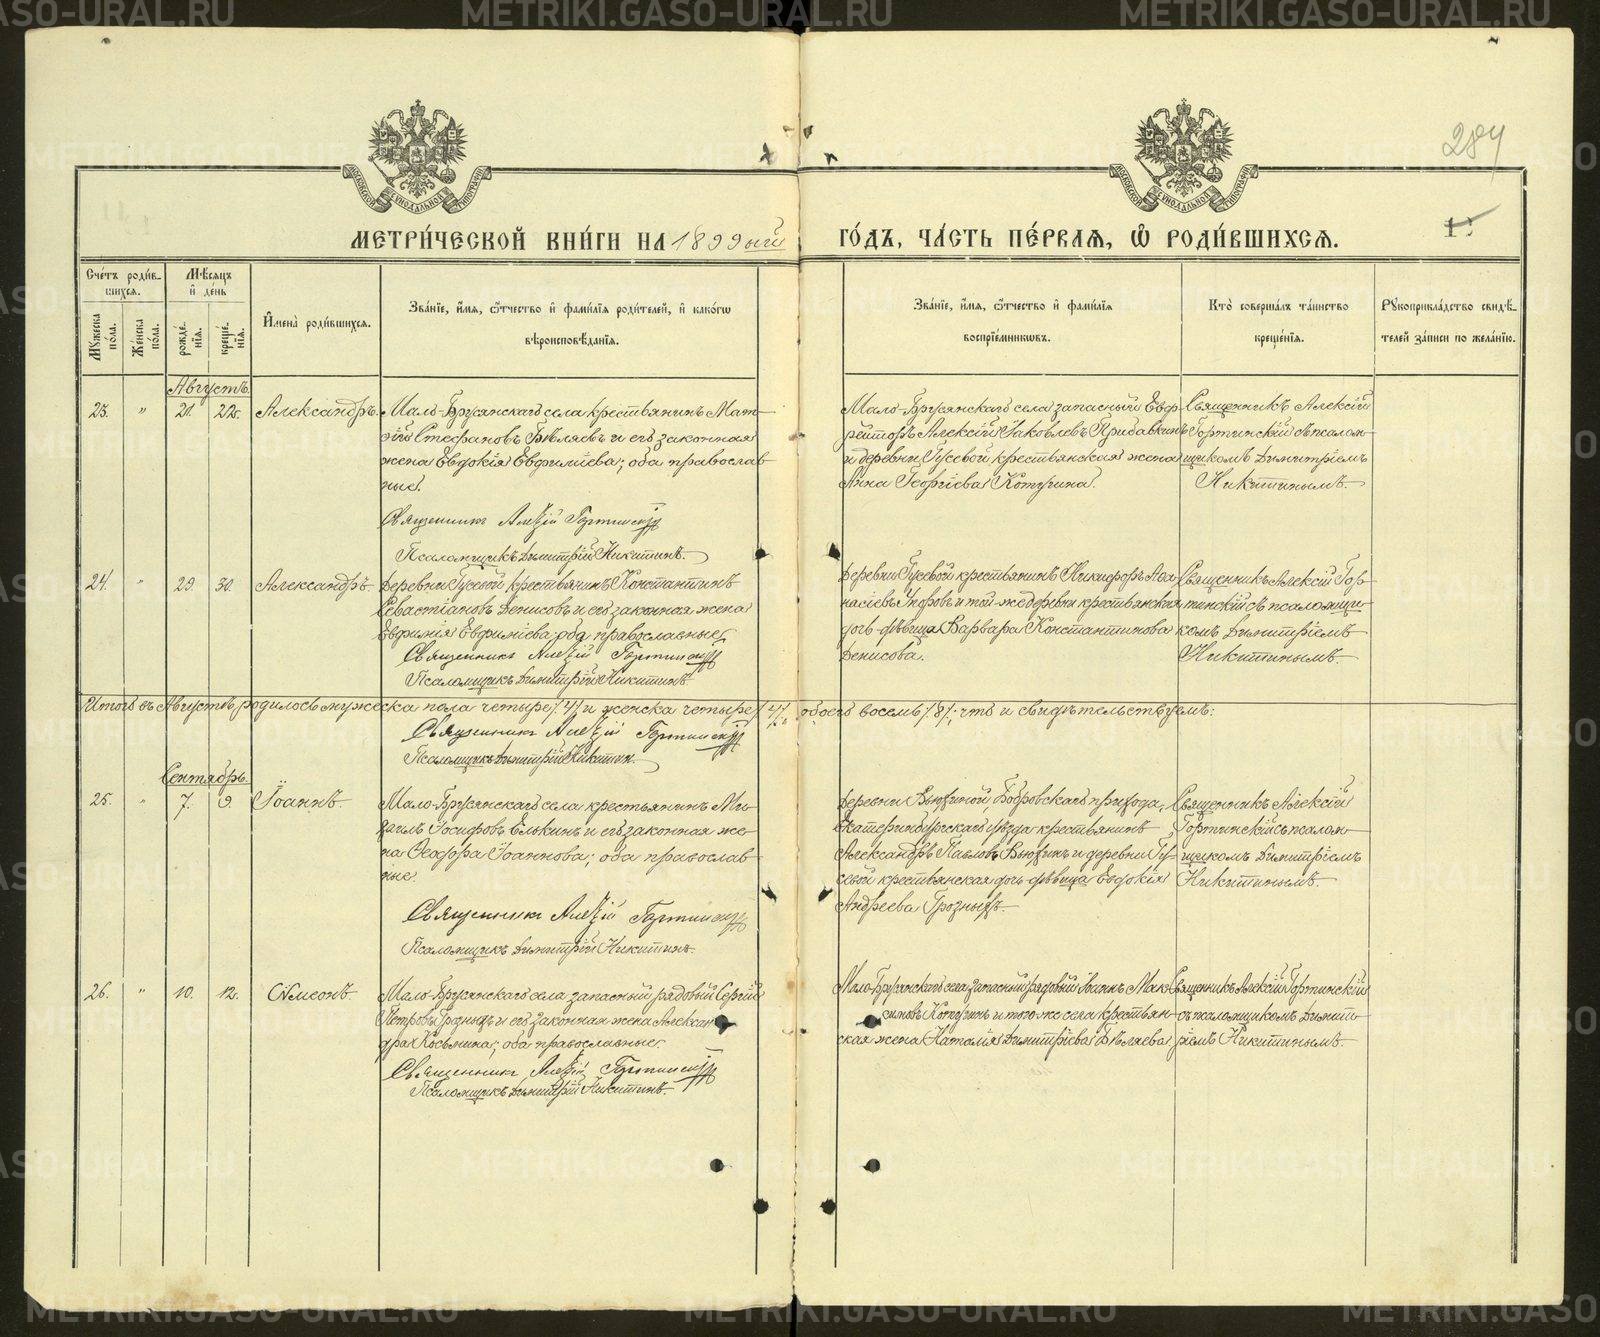 284
МЕТРИ́ЧЕСКОЙ КНИ́ГИ НА 1899ый ГО́ДЪ, ЧА́СТЬ ПЕ́РВАЯ, Ѡ҆ РОДИ́ВШИХСЯ.
Сче́тъ роди́вшихся.
Мѣ́сяцъ и҆ де́нь
Мꙋ́жеска по́ла.
Же́нска по́ла.
рожде́нїя.
креще́нїя.
И҆мена̀ роди́вшихся.
Зва́нїе, и҆́мя, ѻ҆́тчество и҆ фами́лїя роди́телей, и҆ како́гѡ
вѣроисповѣ́данїя.
Зва́нїе, и҆́мя, ѻ҆́тчество и҆ фами́лїя
воспрїе́мникѡвъ.
Кто̀ соверша́лъ та́инство
креще́нїя.
Рꙋкоприкла́дство свидѣ́телей за́писи по жела́нїю.
Августъ.
23. " 21. 22. Александръ.
Мало-Брусянскаго села крестьянинъ Мат-
ѳій Стефановъ Бѣляевъ и его законная
жена Евдокія Евфиміева; оба православ-
ные.
Священникъ Алексій Гортинскій
Псаломщикъ Димитрій Никитинъ.
Мало-Брусянскаго села запасный Ефр-
рейторъ Алексій Іаковлевъ Прибавкинъ
и деревни Гусевой крестьянская жена
Анна Георгіева Котугина.
Священникъ Алексій
Гортинскій съ псалом-
щикомъ Димитріемъ
Никитинымъ.
24. " 29. 30. Александръ.
Деревни Гусевой крестьянинъ Константинъ
Севастіановъ Денисовъ и его законная жена
Евфимія Евфиміева; оба православные.
Священникъ Алексій Гортинскій
Псаломщикъ Димитрій Никитинъ
Деревни Гусевой крестьянинъ Никифоръ Аѳа-
насіевъ и той-же деревни крестьянская
дочь-дѣвица Варвара Константинова
Денисова.
Священникъ Алексій Гор-
тинскій съ псаломщи-
комъ Димитріемъ
Никитинымъ.
Итого въ Августѣ родилось мужеска пола четыре /4/ и женска четыре /4/, обоего восемь /8/; что и свидѣтельствуемъ:
Священникъ Алексій Гортинскій
Псаломщикъ Димитрій Никитин.
Сентябрь.
25. " 7. 9. Іоаннъ.
Мало-Брусянскаго села крестьянинъ Ми-
хаилъ Іосифовъ Елькинъ и его законная же-
на Ѳеодора Іоаннова; оба православ-
ные.
Священникъ Алексій Гортинскій
Псаломщикъ Димитрій Никитинъ.
Деревни Вьюхиной, Бобровскаго прихода,
Екатеринбургскаго уѣзда крестьянинъ
Александръ Павловъ Вьюхинъ и деревни Гу-
севой крестьянская дочь-дѣвица Евдокія
Андреева Грозныхъ.
Священникъ Алексій
Гортинскій съ псалом-
щикомъ Димитріемъ
Никитинымъ.
26. " 10. 12. Сѵмеонъ.
Мало-Брусянскаго села запасный рядовый Сергій
Петровъ Грозныхъ и его законная жена Алексан-
дра Косьмина; оба православные.
Священникъ Алексій Гортинскій
Псаломщикъ Димитрій Никитинъ.
Мало-Брусянскаго села запасный рядовый Іоаннъ Мак-
симовъ Котугинъ и того-же села крестьян-
ская жена Наталія Димитріева Бѣляева
Священникъ Алексій Гортинскій
съ псаломщикомъ Димит-
ріемъ Никитинымъ.
METRIKI.GASO-URAL.RU